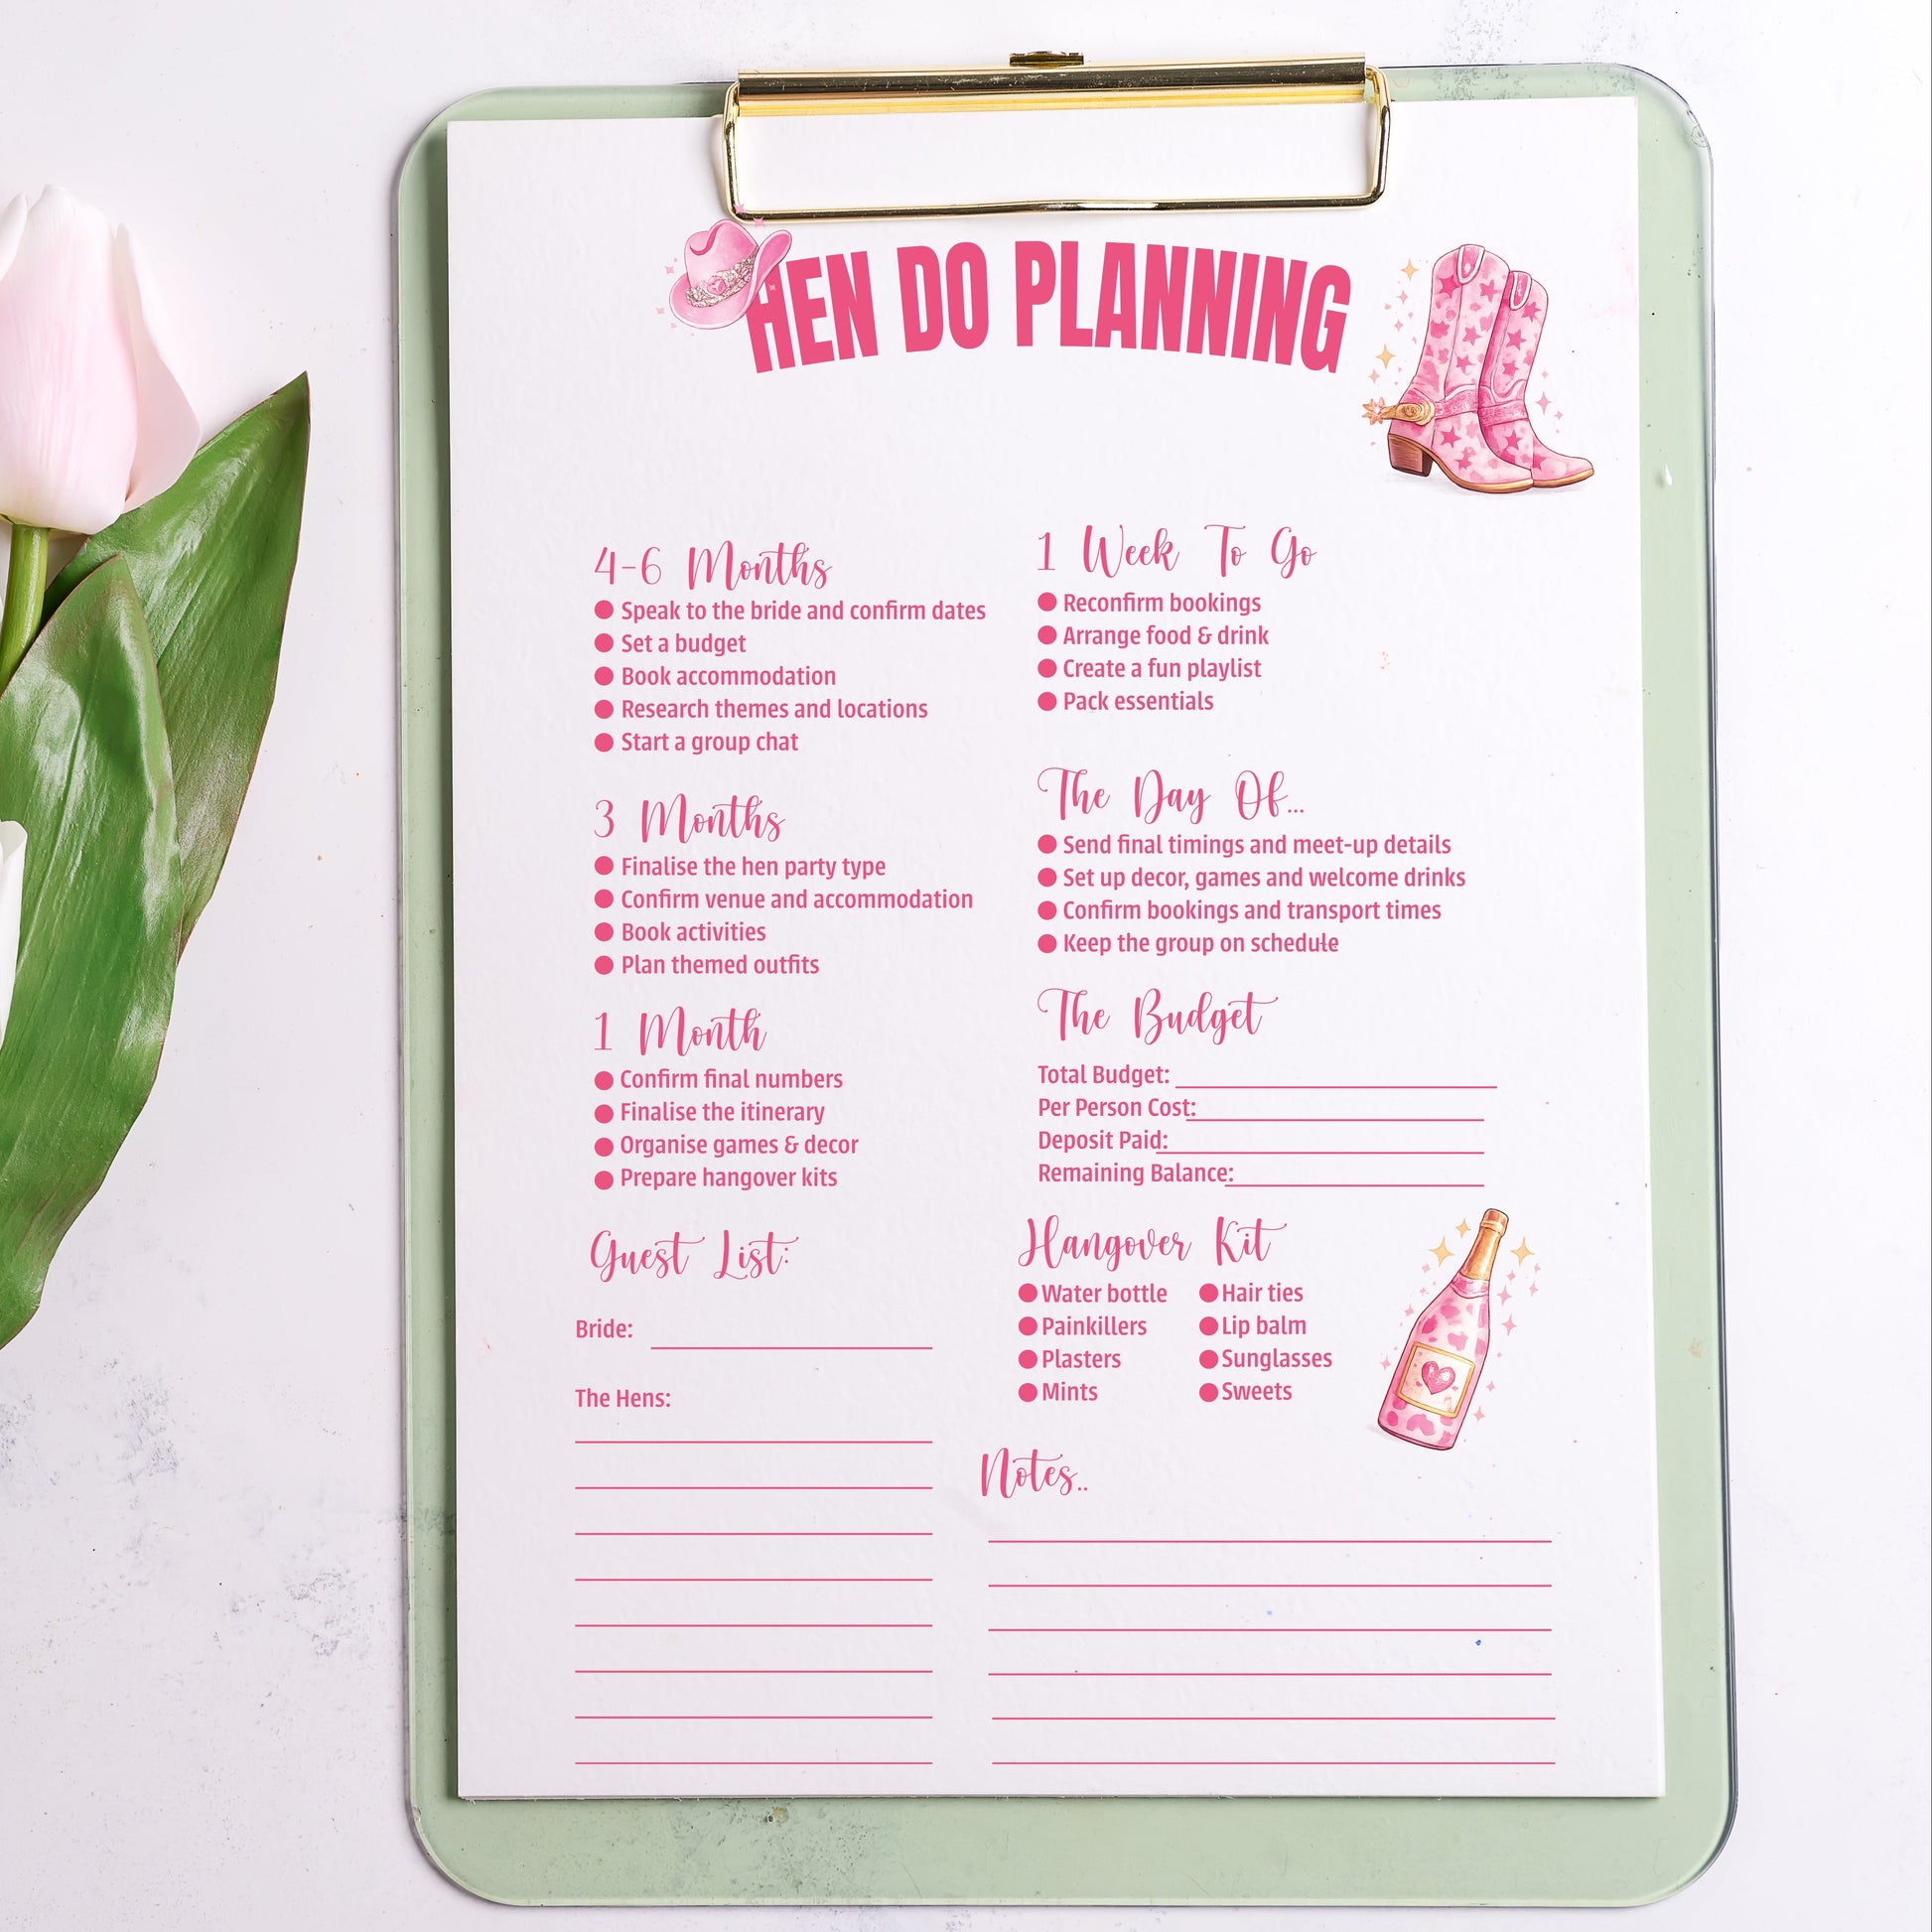 HEN DO PLANNING
4-6 Months
Speak to the bride and confirm dates
Set a budget
Book accommodation
Research themes and locations
Start a group chat
3 Months
Finalise the hen party type
Confirm venue and accommodation
Book activities
Plan themed outfits
1 Month
Confirm final numbers
Finalise the itinerary
Organise games & decor
Prepare hangover kits
Guest List:
Bride:
The Hens:
1 Week To Go
Reconfirm bookings
Arrange food & drink
Create a fun playlist
Pack essentials
The Day Of...
Send final timings and meet-up details
Set up decor, games and welcome drinks
Confirm bookings and transport times
Keep the group on schedule
The Budget
Total Budget:
Per Person Cost:
Deposit Paid:
Remaining Balance:
Hangover Kit
Water bottle
Painkillers
Plasters
Mints
Hair ties
Lip balm
Sunglasses
Sweets
Notes..